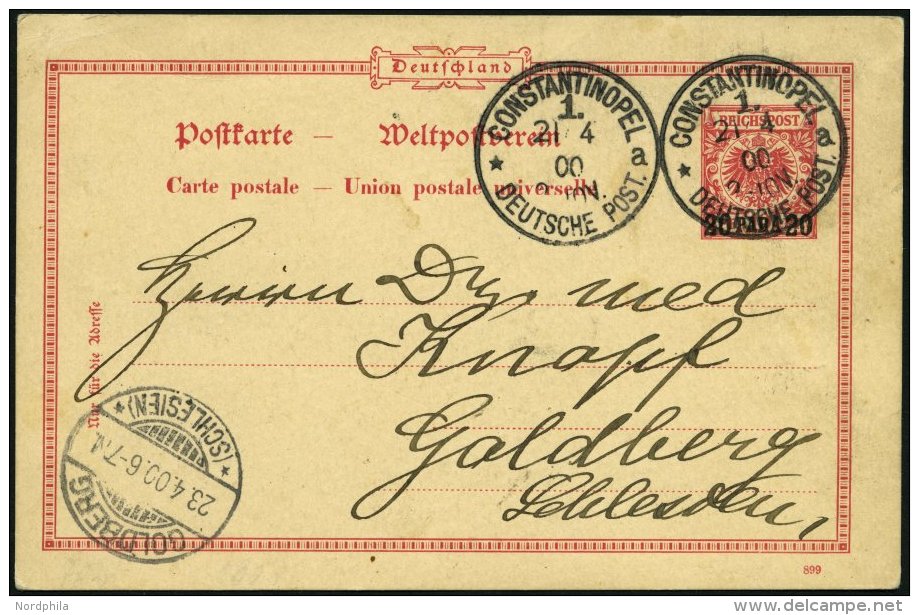 Deutschland
Postkarte — Weltpostverein
Carte postale — Union postale universelle
CONSTANTINOPEL
1.
21 4
00
a
* DEUTSCHE POST.
CONSTANTINOPEL
1.
21 4
00
a
* DEUTSCHE POST.
REICHSPOST
20 PARA 20
Herrn Dr. med
Knopf
Goldberg
Schlesien,
Nur für die Adresse
GOLDBERG
23.4.00.6-7N.
*(SCHLESIEN)*
899
Nordphila
delcampe.net